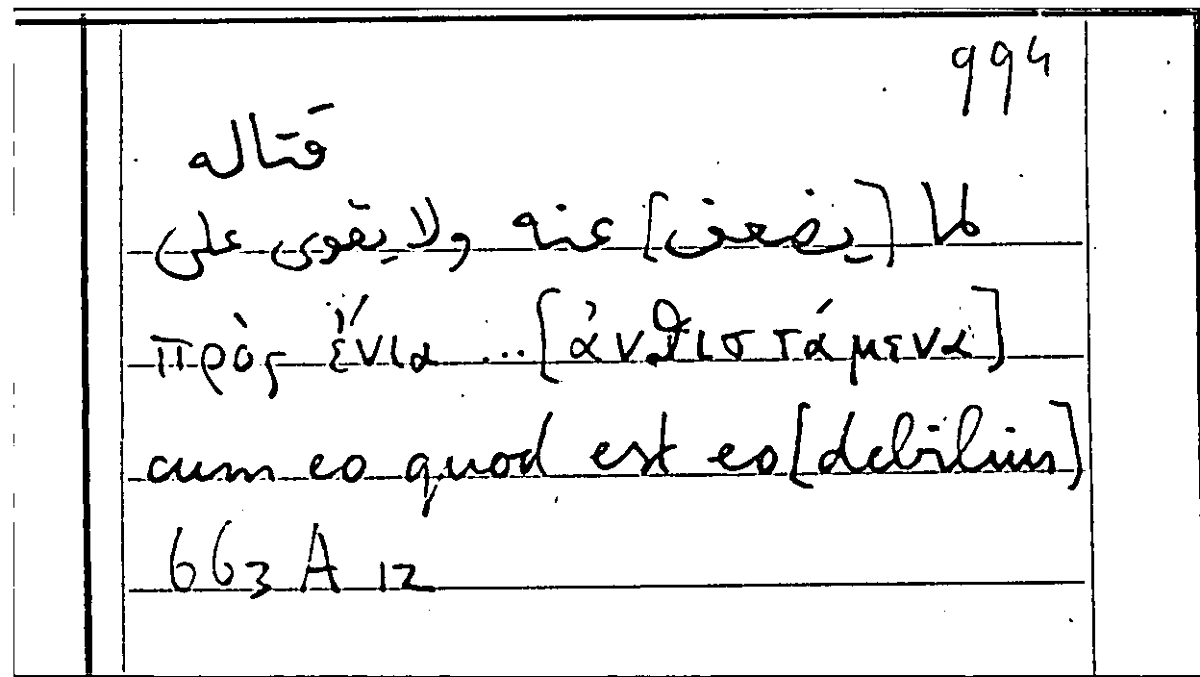 994
قتاله
لما [يضعف] عنه ولا يقوى على
πρὸς ἔνια ... [ἀνθιστάμενα]
cum eo quod est eo [debilius]
663 A 12